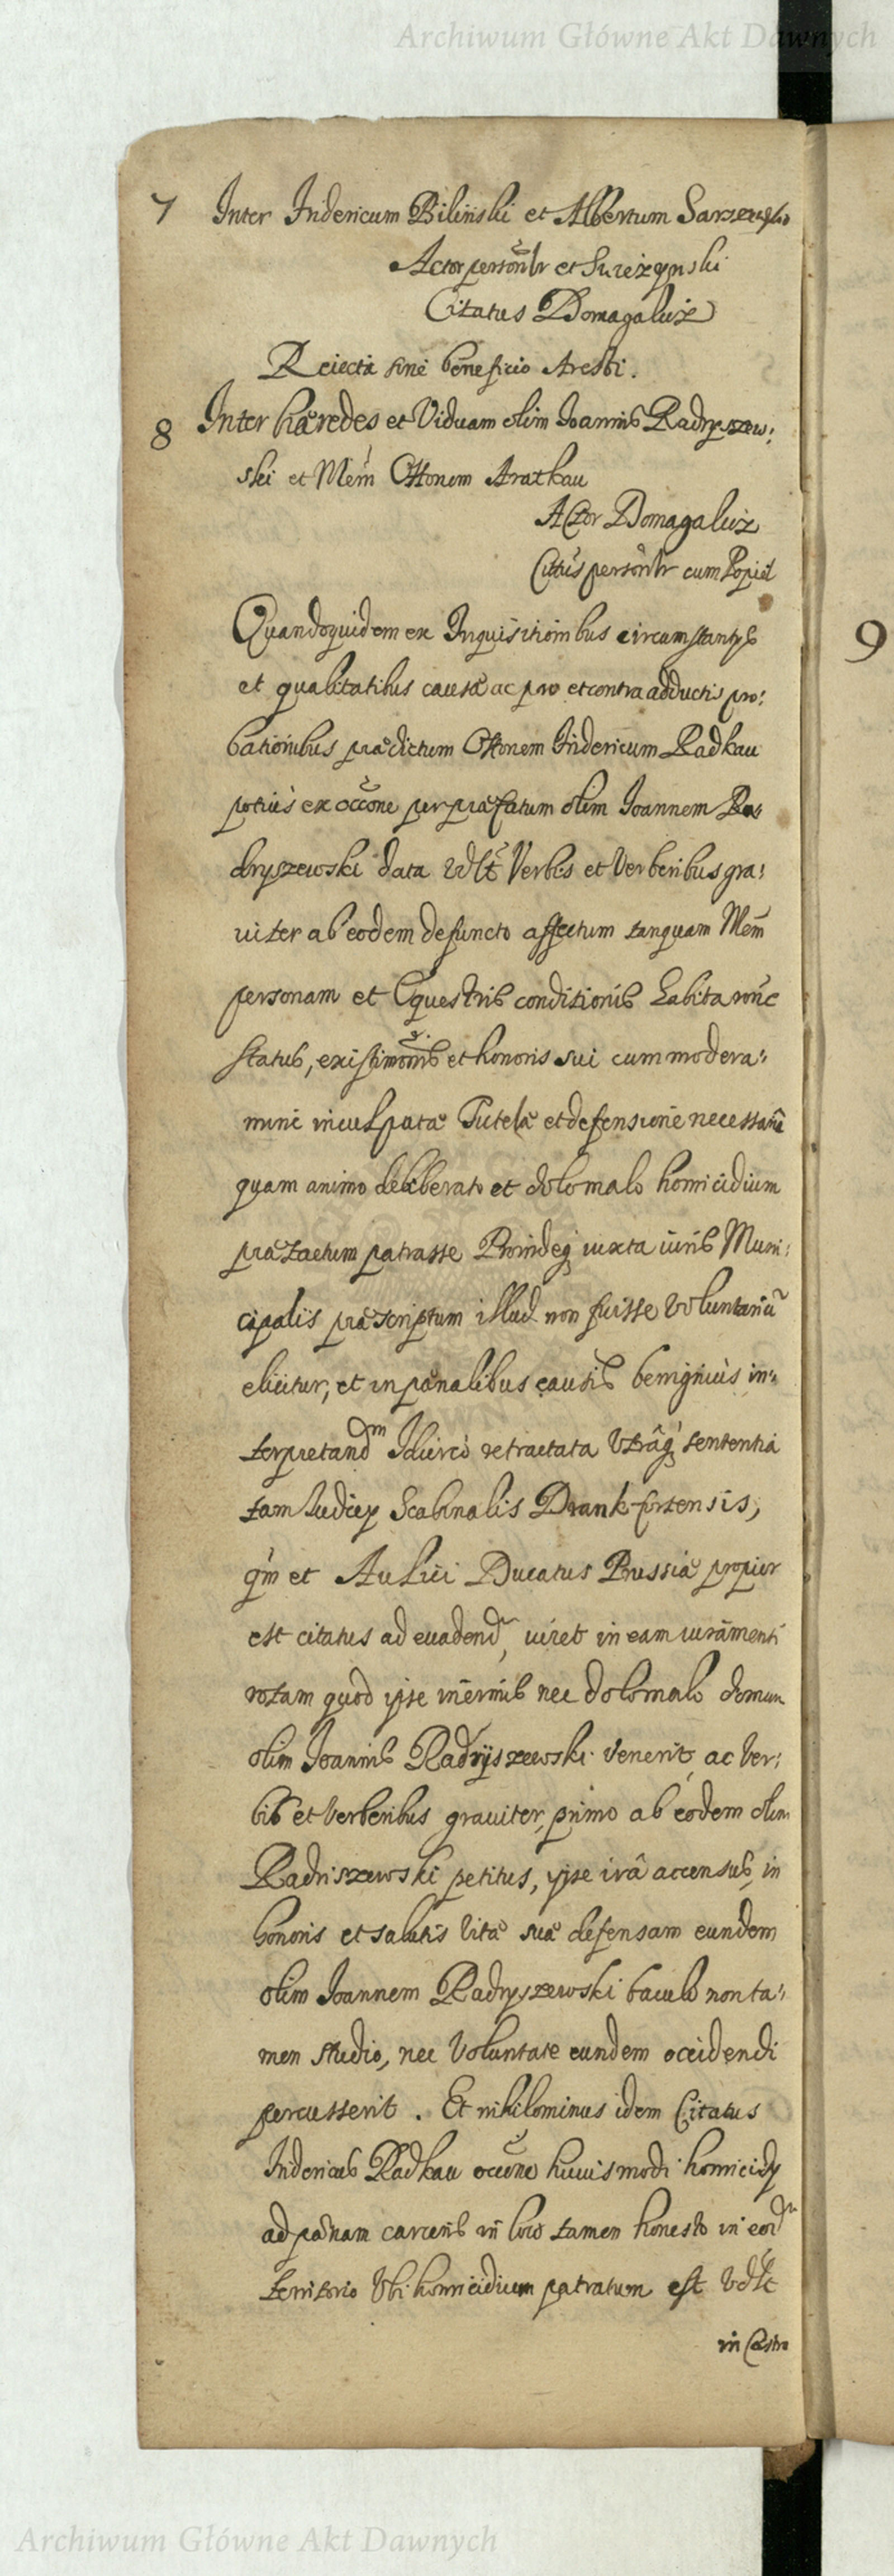 Archiwum Główne Akt Dawnych
7 Inter Indericum Biliński et Albertum
Actor personlr et Swiezynski
Citatus Domagalwiz
Reiecta sine beneficio Aresti.
8 Inter hæredes et Viduam olim Joannis Radryszew:
ski et Mem Ottonem Aratkau
Actor Domagaluiz
Citatus personlr cum Popiel
Quandoquidem ex Inquisitionibus circumstantys
et qualitatibus causæ ac pro et contra adductis pro:
bationibus prædictum Ottonem Indericum Radkau
potius ex occone per præfatum olim Joannem Ra
dryszewski data vdlt Verbis et Verberibus gra:
uiter ab eodem defuncto affectum tanquam Mem
personam et Equestris conditionis habita ronc
status, existimonis et honoris sui cum modera:
mine inculpatæ Tutelæ et defensione necessaria
quam animo deliberato et dolo malo homicidium
prætactum patrasse Proindeq iuxta iuris Muni:
cipalis præscriptum illud non fuisse voluntariu
elicitur, et in pænalibus causis benignius in:
terpretandm Idcirco retractata Vtraq sententia
tam Judicy Scabinalis Drankfurtensis,
qm et Aulici Ducatus Prussiæ propior
est citatus ad euadend, iuret in eam iuramenti
rotam quod ipse inermis nec dolo malo domum
olim Joannis Radryszewski venerit, ac Ver:
bis et Verberibus grauiter, primo ab eodem olim
Radriszewski petitus, ipse irâ accensus, in
honoris et salutis Vitæ suæ defensam eundem
olim Joannem Radryszewski baculo non ta:
men studio, nec Voluntate eundem occidendi
percusserit. Et nihilominus idem Citatus
Indericus Radkau occne huiusmodi homicidy
ad pænam carceris in loco tamen honesto in eod
territorio Vbi homicidium patratum est vdlt
in Castro
9
Archiwum Główne Akt Dawnych